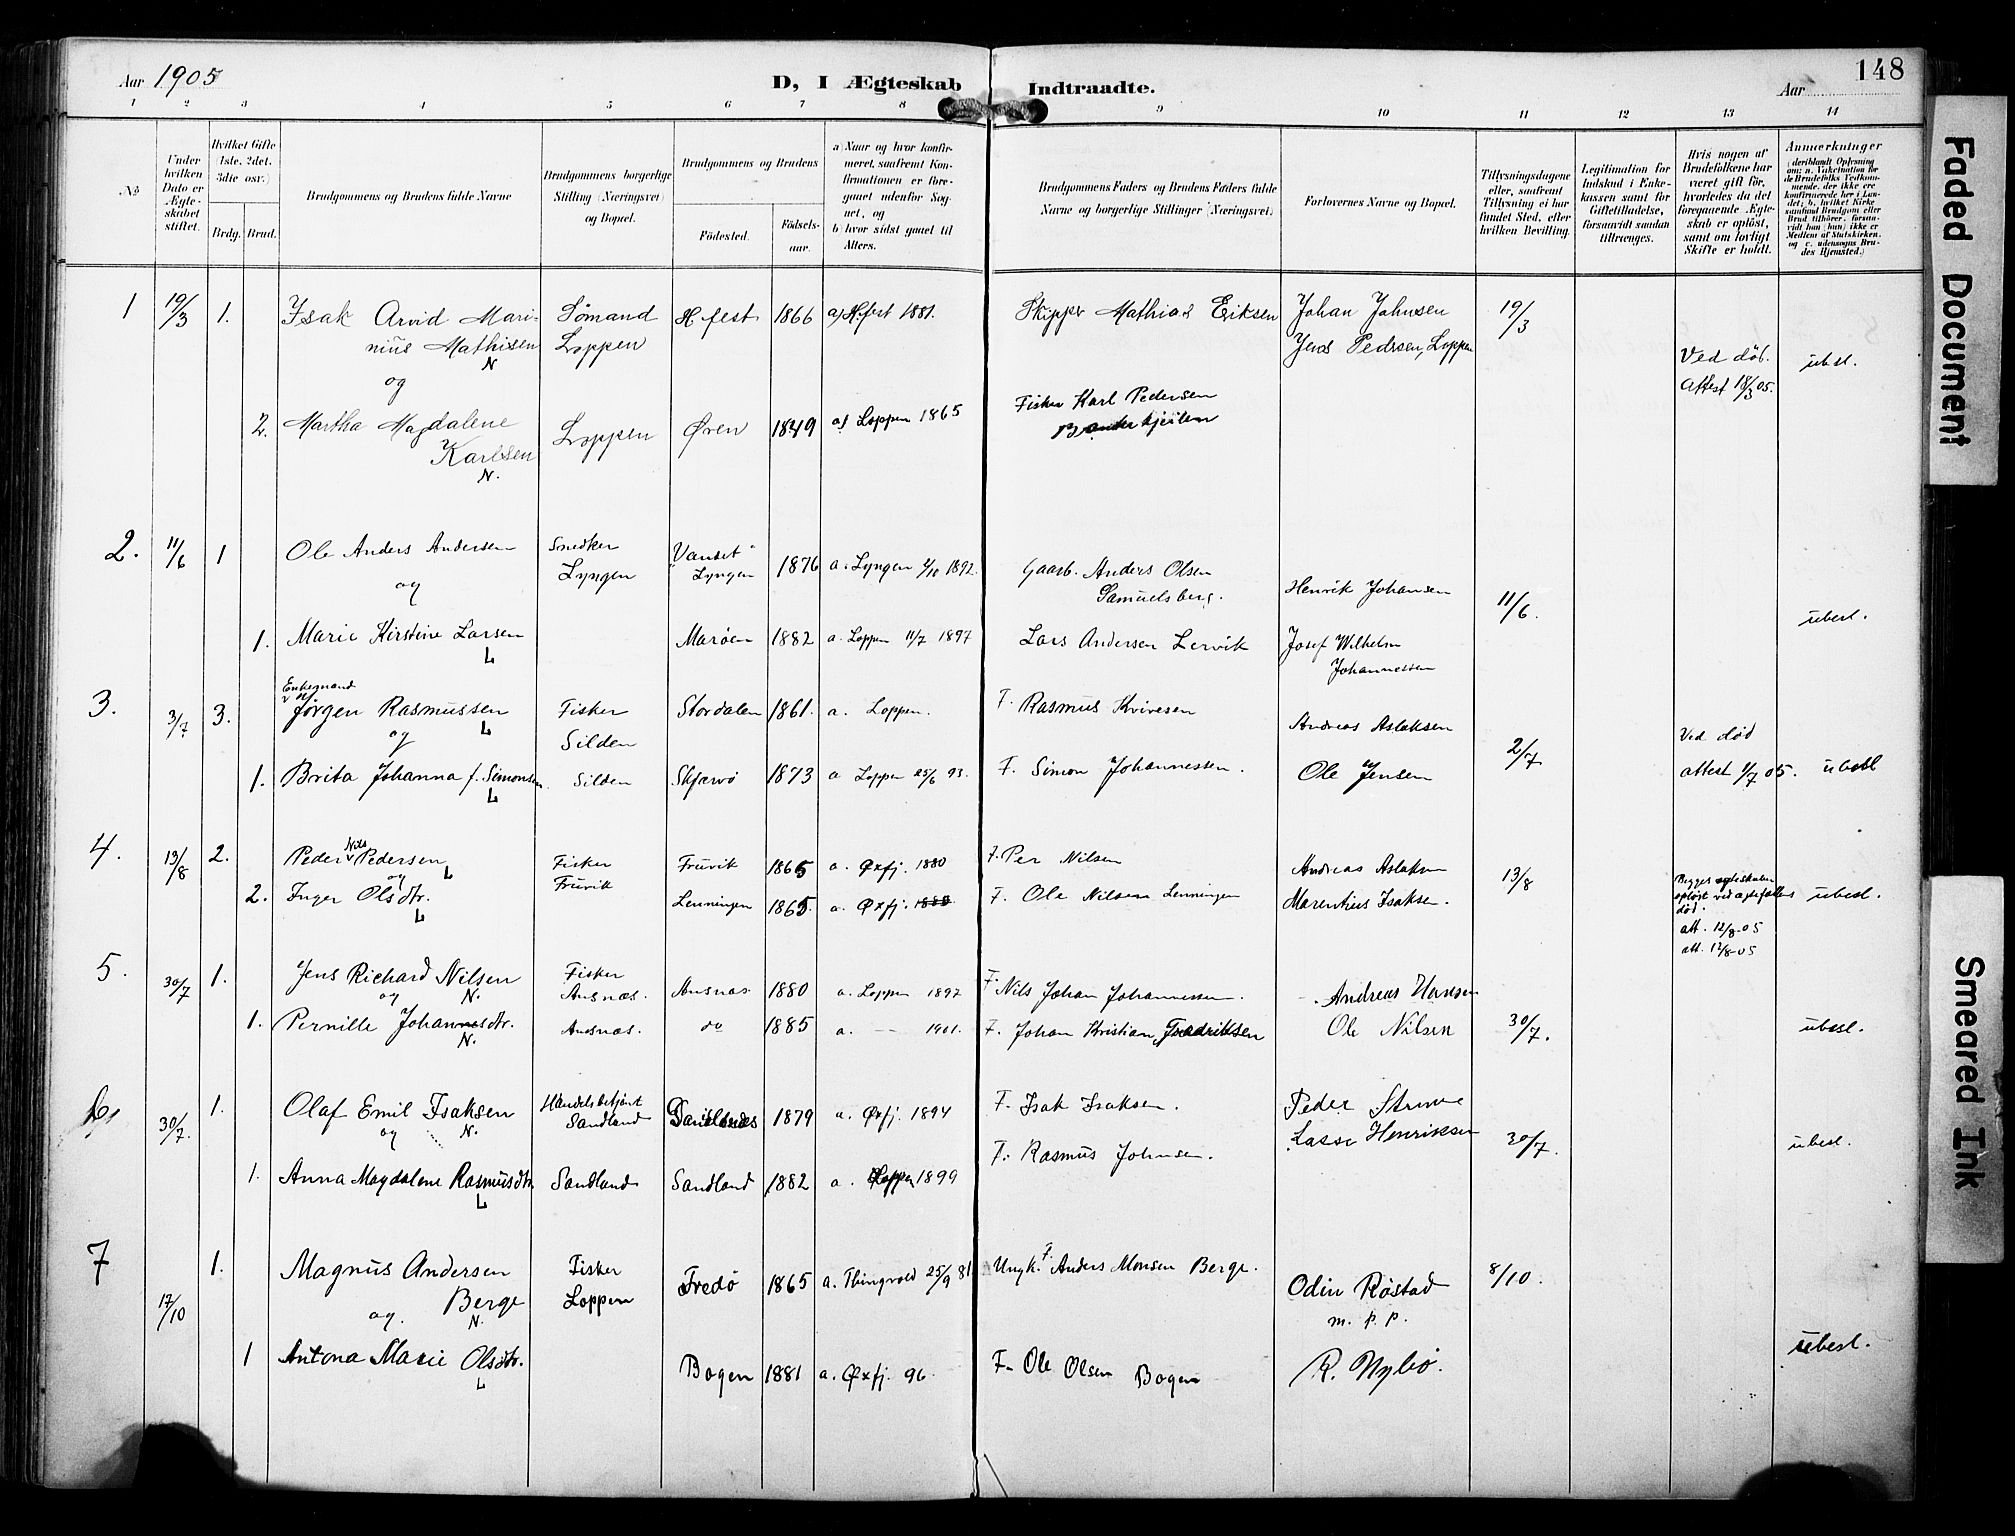 Aar 1905
D, I Ægteskab Indtraadte.
Aar
148
1 2 3 4 5 6 7 8 9 10 11 12 13 14
No
Under hvilken Dato er Ægteskabet stiftet.
Hvilket Gifte (1ste, 2det, 3die osv.)
Brdg. Brud.
Brudgommens og Brudens fulde Navne
Brudgommens borgerlige Stilling (Næringsvei) og Bopæl.
Brudgommens og Brudens
Fødested.
Fødselsaar.
a) Naar og hvor konfirmeret, saafremt Konfirmationen er foregaaet udenfor Sognet, og
b) hvor sidst gaaet til Alters.
Brudgommens Faders og Brudens Faders fulde Navne og borgerlige Stillinger (Næringsvei)
Forlovernes Navne og Bopæl.
Tillysningsdagene eller, saafremt Tillysning ei har fundet Sted, efter hvilken Bevilling.
Legitimation for Indskud i Enkekassen samt for Giftetilladelse, forsaavidt saadan tiltrænges.
Hvis nogen af Brudefolkene har været gift før, hvorledes da det foregaaende Ægteskab er opløst, samt om lovligt Skifte er holdt.
Anmerkninger
(deriblandt Oplysning om: a. Vakcination for de Brudefolks Vedkommende, der ikke ere konfirmerede her i Landet; b. hvilket Kirkesamfund Brudgom eller Brud tilhører, forsaavidt han (hun) ikke er Medlem af Statskirken, og c. udensogns Brudes Hjemsted.)
1 19/3 1. Isak Arvid Mari- Sömand H.fest 1866 a) H.fest 1881. Skipper Mathias Eriksen Johan Johnsen 19/3
nius Mathisen Loppen Jens Pedersen, Loppen
N
og
Ved död.
attest 18/3 05. ubesl.
2. Martha Magdalene Loppen Øren 1849 a) Loppen 1865 Fisker Karl Pedersen
Karlsen
N.
2. 11/6 1 Ole Anders Andersen Snedker Vanset 1876 a. Lyngen 2/10 1892. Gaarb. Anders Olsen
og Lyngen Lyngen Samuelsberg. Henrik Johansen 11/6. ubesl.
1. Marie Kirstine Larsen Marøen 1882 a. Loppen 11/7 1897 Lars Andersen Lervik Josef Wilhelm
L Johannessen
3. 3/7 3. Enkemand
Jørgen Rasmussen Fisker Stordalen 1861. a. Loppen. F. Rasmus Kvivesen Andreas Aslaksen
L
og Silden 2/7 Ved död
1. Brita Johanna f. Simonsen Silden Skjærvö 1873 a Loppen 25/6 93. F. Simon Johannessen. Ole Jensen attest 1/7 05. ubesl
L
4. 13/8 2. Peder Nils Pedersen Fisker Fruvik 1865 a. Øxfj. 1880 F. Per Nilsen Andreas Aslaksen 13/8
L
og Fruvik
2. Inger Olsdtr. Lenningen 1865. a. Øxfj. 1880 F. Ole Nilsen Lenningen Marentius Isaksen. Begges egteskaber opløst ved egtefælles död. ubesl.
L
att. 12/8-05
att. 12/8-05
5. 30/7 1. Jens Richard Nilsen Fisker Ansnæs 1880 a. Loppen 1897 F. Nils Johan Johannessen. Andreas Hansen
og N. Ansnæs.
1. Pernille Johannesdtr. Ansnæs. do 1885 a. — 1901. F. Johan Kristian Fredriksen Ole Nilsen 30/7. ubesl.
N.
6. 30/7. 1. Olaf Emil Isaksen Handelsbetjent Sandland 1879 a. Øxfj. 1894 F. Isak Isaksen. Peder Struve
og N. Sandland Lasse Henriksen 30/7. ubesl.
1. Anna Magdalene Rasmusdtr Sandland Sandland 1882 a. Loppen 1899 F. Rasmus Johnsen.
L
7 17/10 1. Magnus Andersen Fisker Fredö 1865 a. Thingvold 25/9 81 Ungk. F. Anders Monsen Berge. Odin Röstad 8/10.
og. Berge Loppen m. p. p.
N.
1 Antona Marie Olsdtr. Bogen 1881 a. Øxfj. 96. F. Ole Olsen Bogen R. Nybö. ubesl.
L
Faded Document
Smeared Ink